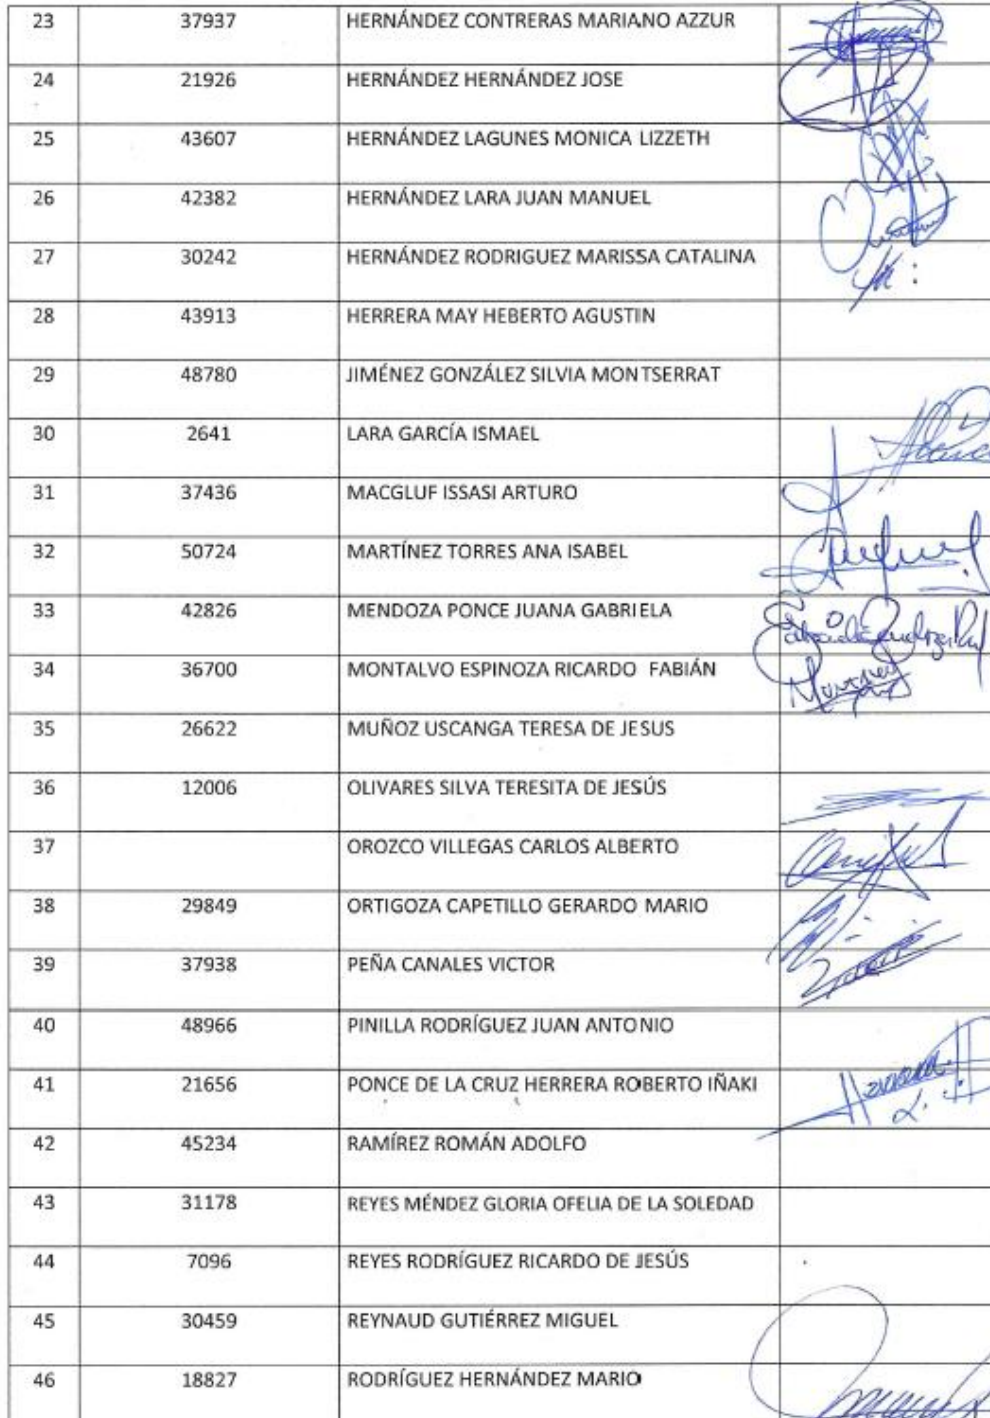 23 37937 HERNÁNDEZ CONTRERAS MARIANO AZZUR
24 21926 HERNÁNDEZ HERNÁNDEZ JOSE
25 43607 HERNÁNDEZ LAGUNES MONICA LIZZETH
26 42382 HERNÁNDEZ LARA JUAN MANUEL
27 30242 HERNÁNDEZ RODRIGUEZ MARISSA CATALINA
28 43913 HERRERA MAY HEBERTO AGUSTIN
29 48780 JIMÉNEZ GONZÁLEZ SILVIA MONTSERRAT
30 2641 LARA GARCÍA ISMAEL
31 37436 MACGLUF ISSASI ARTURO
32 50724 MARTÍNEZ TORRES ANA ISABEL
33 42826 MENDOZA PONCE JUANA GABRIELA
34 36700 MONTALVO ESPINOZA RICARDO FABIÁN
35 26622 MUÑOZ USCANGA TERESA DE JESUS
36 12006 OLIVARES SILVA TERESITA DE JESÚS
37 OROZCO VILLEGAS CARLOS ALBERTO
38 29849 ORTIGOZA CAPETILLO GERARDO MARIO
39 37938 PEÑA CANALES VICTOR
40 48966 PINILLA RODRÍGUEZ JUAN ANTONIO
41 21656 PONCE DE LA CRUZ HERRERA ROBERTO IÑAKI
42 45234 RAMÍREZ ROMÁN ADOLFO
43 31178 REYES MÉNDEZ GLORIA OFELIA DE LA SOLEDAD
44 7096 REYES RODRÍGUEZ RICARDO DE JESÚS
45 30459 REYNAUD GUTIÉRREZ MIGUEL
46 18827 RODRÍGUEZ HERNÁNDEZ MARIO